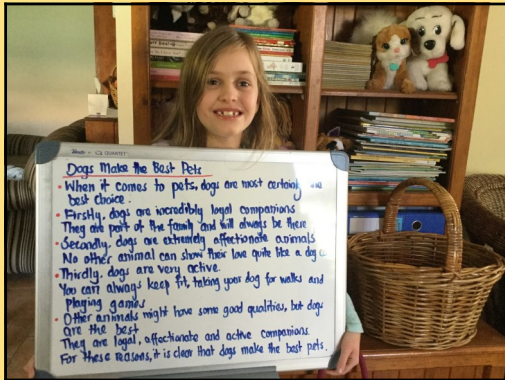 QUARTET
Dogs Make the Best Pets
• When it comes to pets, dogs are most certainly the
best choice.
• Firstly, dogs are incredibly loyal companions
They are part of the family and will always be there
• Secondly, dogs are extremely affectionate animals
No other animal can show their love quite like a dog
• Thirdly, dogs are very active.
You can always keep fit, taking your dog for walks and
playing games.
• Other animals might have some good qualities, but dogs
are the best
They are loyal, affectionate and active companions.
For these reasons, it is clear that dogs make the best pets.